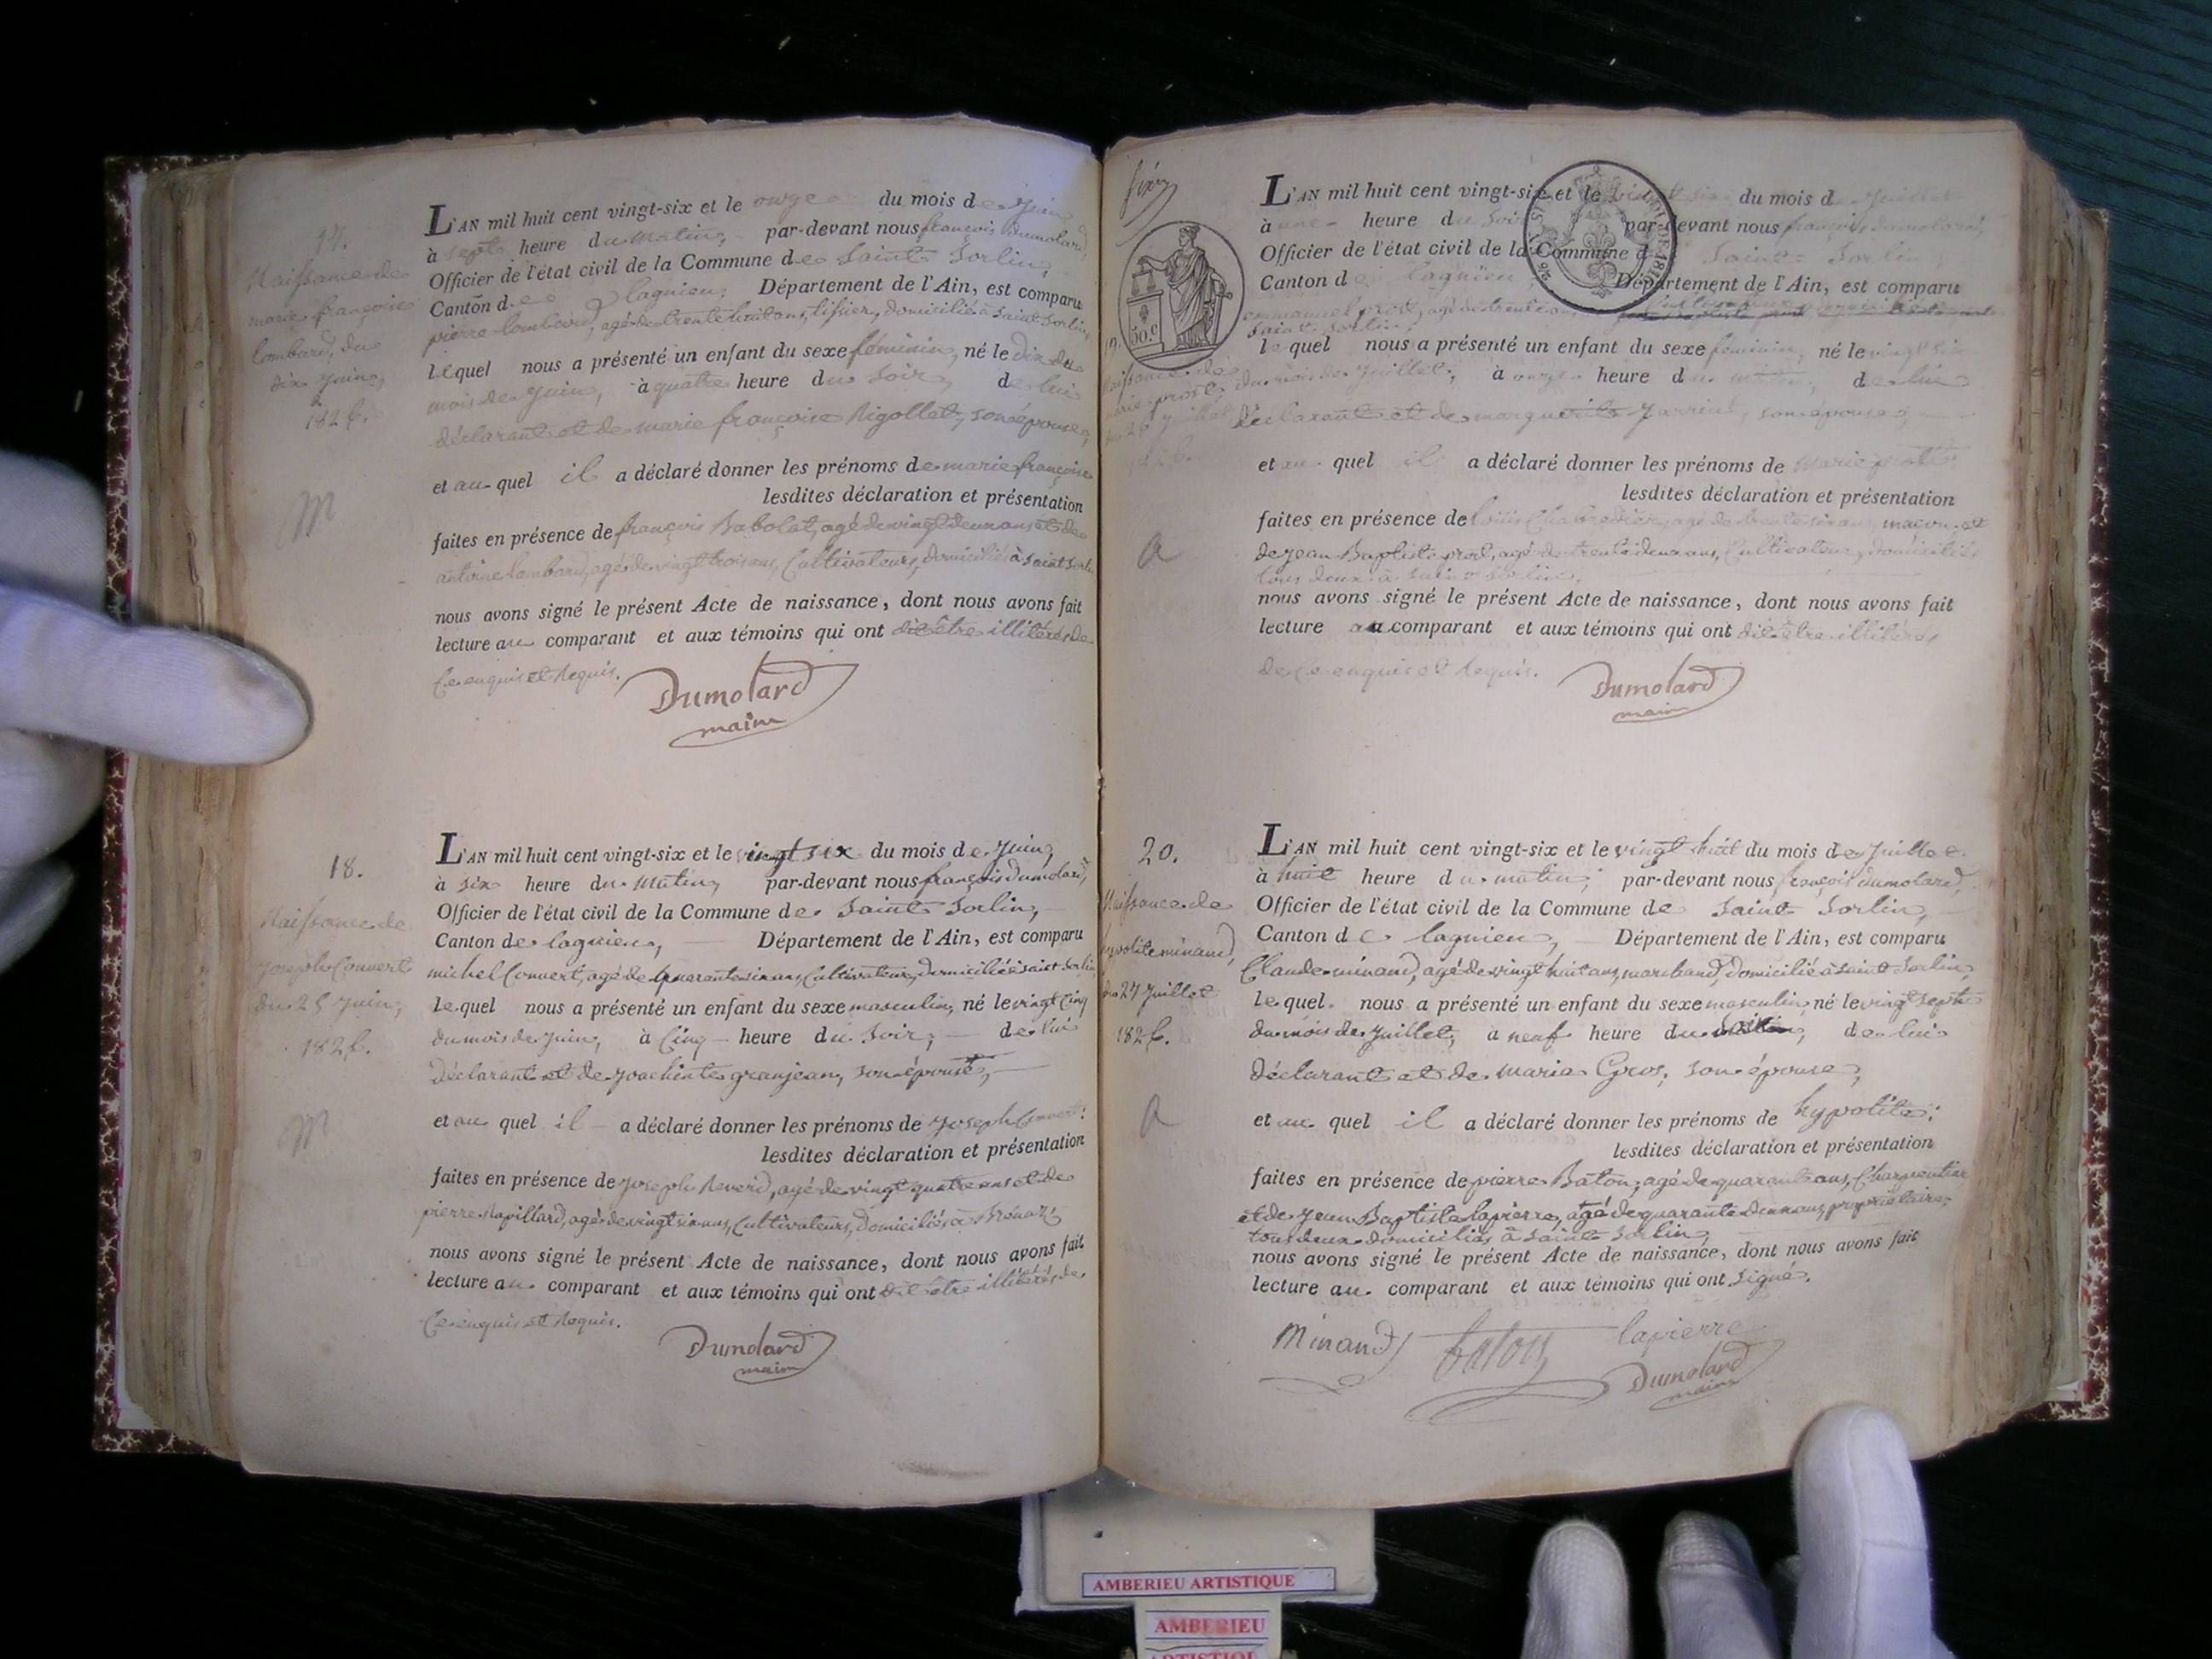 17.
Naissance de
marie françoise
lombard, du
dix juin,
1826.
M
L'AN mil huit cent vingt-six et le onze du mois de juin
à sept heure du matin, par-devant nous françois dumolard,
Officier de l'état civil de la Commune de Saint Sorlin,
Canton de lagnieu, Département de l'Ain, est comparu
pierre lombard, agé de trente huit ans, tissier, domicilié à saint Sorlin,
lequel nous a présenté un enfant du sexe feminin, né le dix du
mois de juin, à quatre heure du soir, de lui
déclarant et de marie françoise Rigollet, son épouse,
et au quel il a déclaré donner les prénoms de marie françoise
lesdites déclaration et présentation
faites en présence de françois Babolat, agé de vingt deux ans et de
antoine lombard, agé de vingt trois ans, Cultivateurs, domiciliés à saint Sorlin
nous avons signé le présent Acte de naissance, dont nous avons fait
lecture au comparant et aux témoins qui ont dit être illitérés de
Ce enquis et Requis.
Dumolard
maire
18.
Naissance de
joseph Convert
du 25 juin,
1826.
M
L'AN mil huit cent vingt-six et le vingt six du mois de juin,
à six heure du matin, par-devant nous françois dumolard,
Officier de l'état civil de la Commune de Saint Sorlin,
Canton de lagnieu, Département de l'Ain, est comparu
michel Convert, agé de quarante six ans, Cultivateur, domicilié à saint Sorlin
lequel nous a présenté un enfant du sexe masculin, né le vingt Cinq
du mois de juin, à Cinq heure du soir, de lui
Déclarant et de joachinte granjean, son épouse,
et au quel il a déclaré donner les prénoms de joseph Convert:
lesdites déclaration et présentation
faites en présence de joseph Reverd, agé de vingt quatre ans et de
pierre Rapillard, agé de vingt six ans, Cultivateurs, domiciliés à
nous avons signé le présent Acte de naissance, dont nous avons fait
lecture au comparant et aux témoins qui ont dit être illitérés de
Ce enquis et Requis.
Dumolard
maire
50.c
19.
Naissance de
marie prost
du 26 juillet
1826.
a
L'AN mil huit cent vingt-six et le vingt six du mois de juillet
à une heure du soir par-devant nous françois dumolard,
Officier de l'état civil de la Commune de Saint Sorlin,
Canton de lagnieu, Département de l'Ain, est comparu
emmanuel prost, agé de trente ans
saint Sorlin,
lequel nous a présenté un enfant du sexe feminin, né le vingt six
du mois de juillet, à onze heure du matin, de lui
déclarant et de marguerite jarriat, son épouse,
et au quel il a déclaré donner les prénoms de Marie prost
lesdites déclaration et présentation
faites en présence de louis agé de trente six ans, maçon et
de jean Baptiste prost, agé de trente deux ans, Cultivateur, domiciliés
tous deux à saint Sorlin,
nous avons signé le présent Acte de naissance, dont nous avons fait
lecture au comparant et aux témoins qui ont dit être illitérés
de Ce enquis et Requis.
Dumolard
maire
20.
Naissance de
hypolite minand,
du 27 juillet
1826.
a
L'AN mil huit cent vingt-six et le vingt huit du mois de juillet
à huit heure du matin, par-devant nous françois dumolard,
Officier de l'état civil de la Commune de Saint Sorlin,
Canton de lagnieu, Département de l'Ain, est comparu
Claude minand, agé de vingt huit ans, marchand, domicilié à saint Sorlin,
lequel nous a présenté un enfant du sexe masculin, né le vingt sept
du mois de juillet, à neuf heure du de lui
déclarant et de marie Gros, son épouse,
et au quel il a déclaré donner les prénoms de hypolite:
lesdites déclaration et présentation
faites en présence de pierre Baton, agé de quarante ans, Charpentier
et de jean Baptiste lapierre, agé de quarante deux ans, propriétaire,
tous deux domiciliés à saint Sorlin,
nous avons signé le présent Acte de naissance, dont nous avons fait
lecture au comparant et aux témoins qui ont signé.
Minand baton lapierre
Dumolard
maire
AMBERIEU ARTISTIQUE
AMBERIEU
ARTISTIQUE